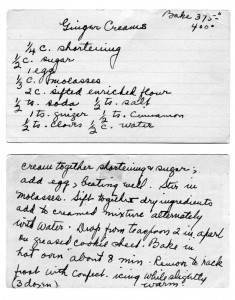 Ginger Creams
Bake 375-°
400°
1/4 C. shortening
1/2 C. sugar
1 egg
1/3 C. molasses
2 C. sifted enriched flour
1/2 ts. soda 1/2 ts. salt
1 ts. ginger 1/2 ts. cinnamon
1/2 ts. cloves 1/2 C. water
cream together shortening & sugar;
add egg; beating well. Stir in
molasses. Sift together dry ingredients
add to creamed mixture alternately
with water. Drop from teaspoons 2 in. apart
on greased cookie sheet. Bake in
hot oven about 8 min. Remove to rack
frost with Confect. icing while slightly
(3 dozen) warm.